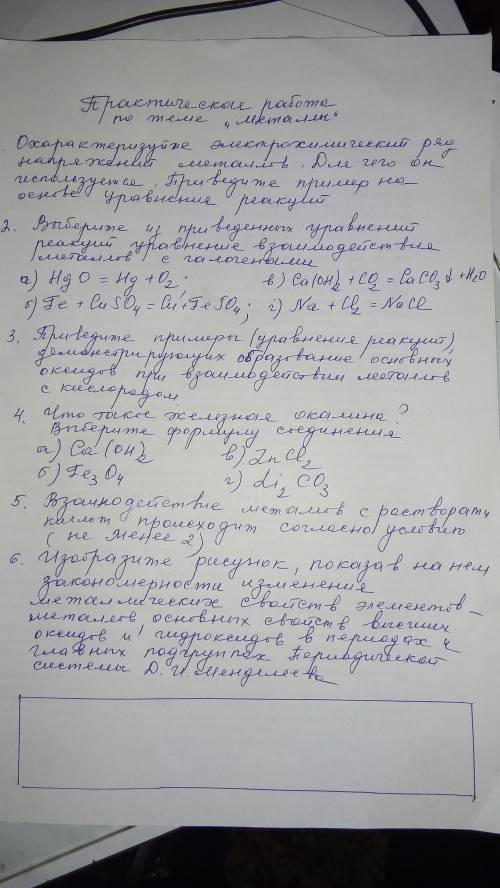 Практическая работа
по теме „металлы"
Охарактеризуйте электрохимический ряд
напряжений металлов. Для чего он
используется. Приведите пример на
основе уравнение реакций
2. Выберите из приведенных уравнений
реакций уравнение взаимодействия
металлов с галогенами
а) HgO = Hg + O2. в) Ca(OH)2 + CO2 = CaCO3↓ + H2O
б) Fe + CuSO4 = Cu + FeSO4; г) Na + Cl2 = NaCl
3. Приведите примеры (уравнения реакций),
демонстрирующих образование основных
оксидов при взаимодействии металлов
с кислородом.
4. Что такое железная окалина?
Выберите формулу соединения
а) Ca(OH)2 в) ZnCl2
б) Fe3O4 г) Li2CO3
5. Взаимодействие металлов с растворами
кислот происходит согласно условию
(не менее 2)
6. Изобразите рисунок, показав на нем
закономерности изменения
металлических свойств элементов –
металлов, основных свойств высших
оксидов и гидроксидов в периодах и
главных подгруппах Периодической
системы Д.И. Менделеева